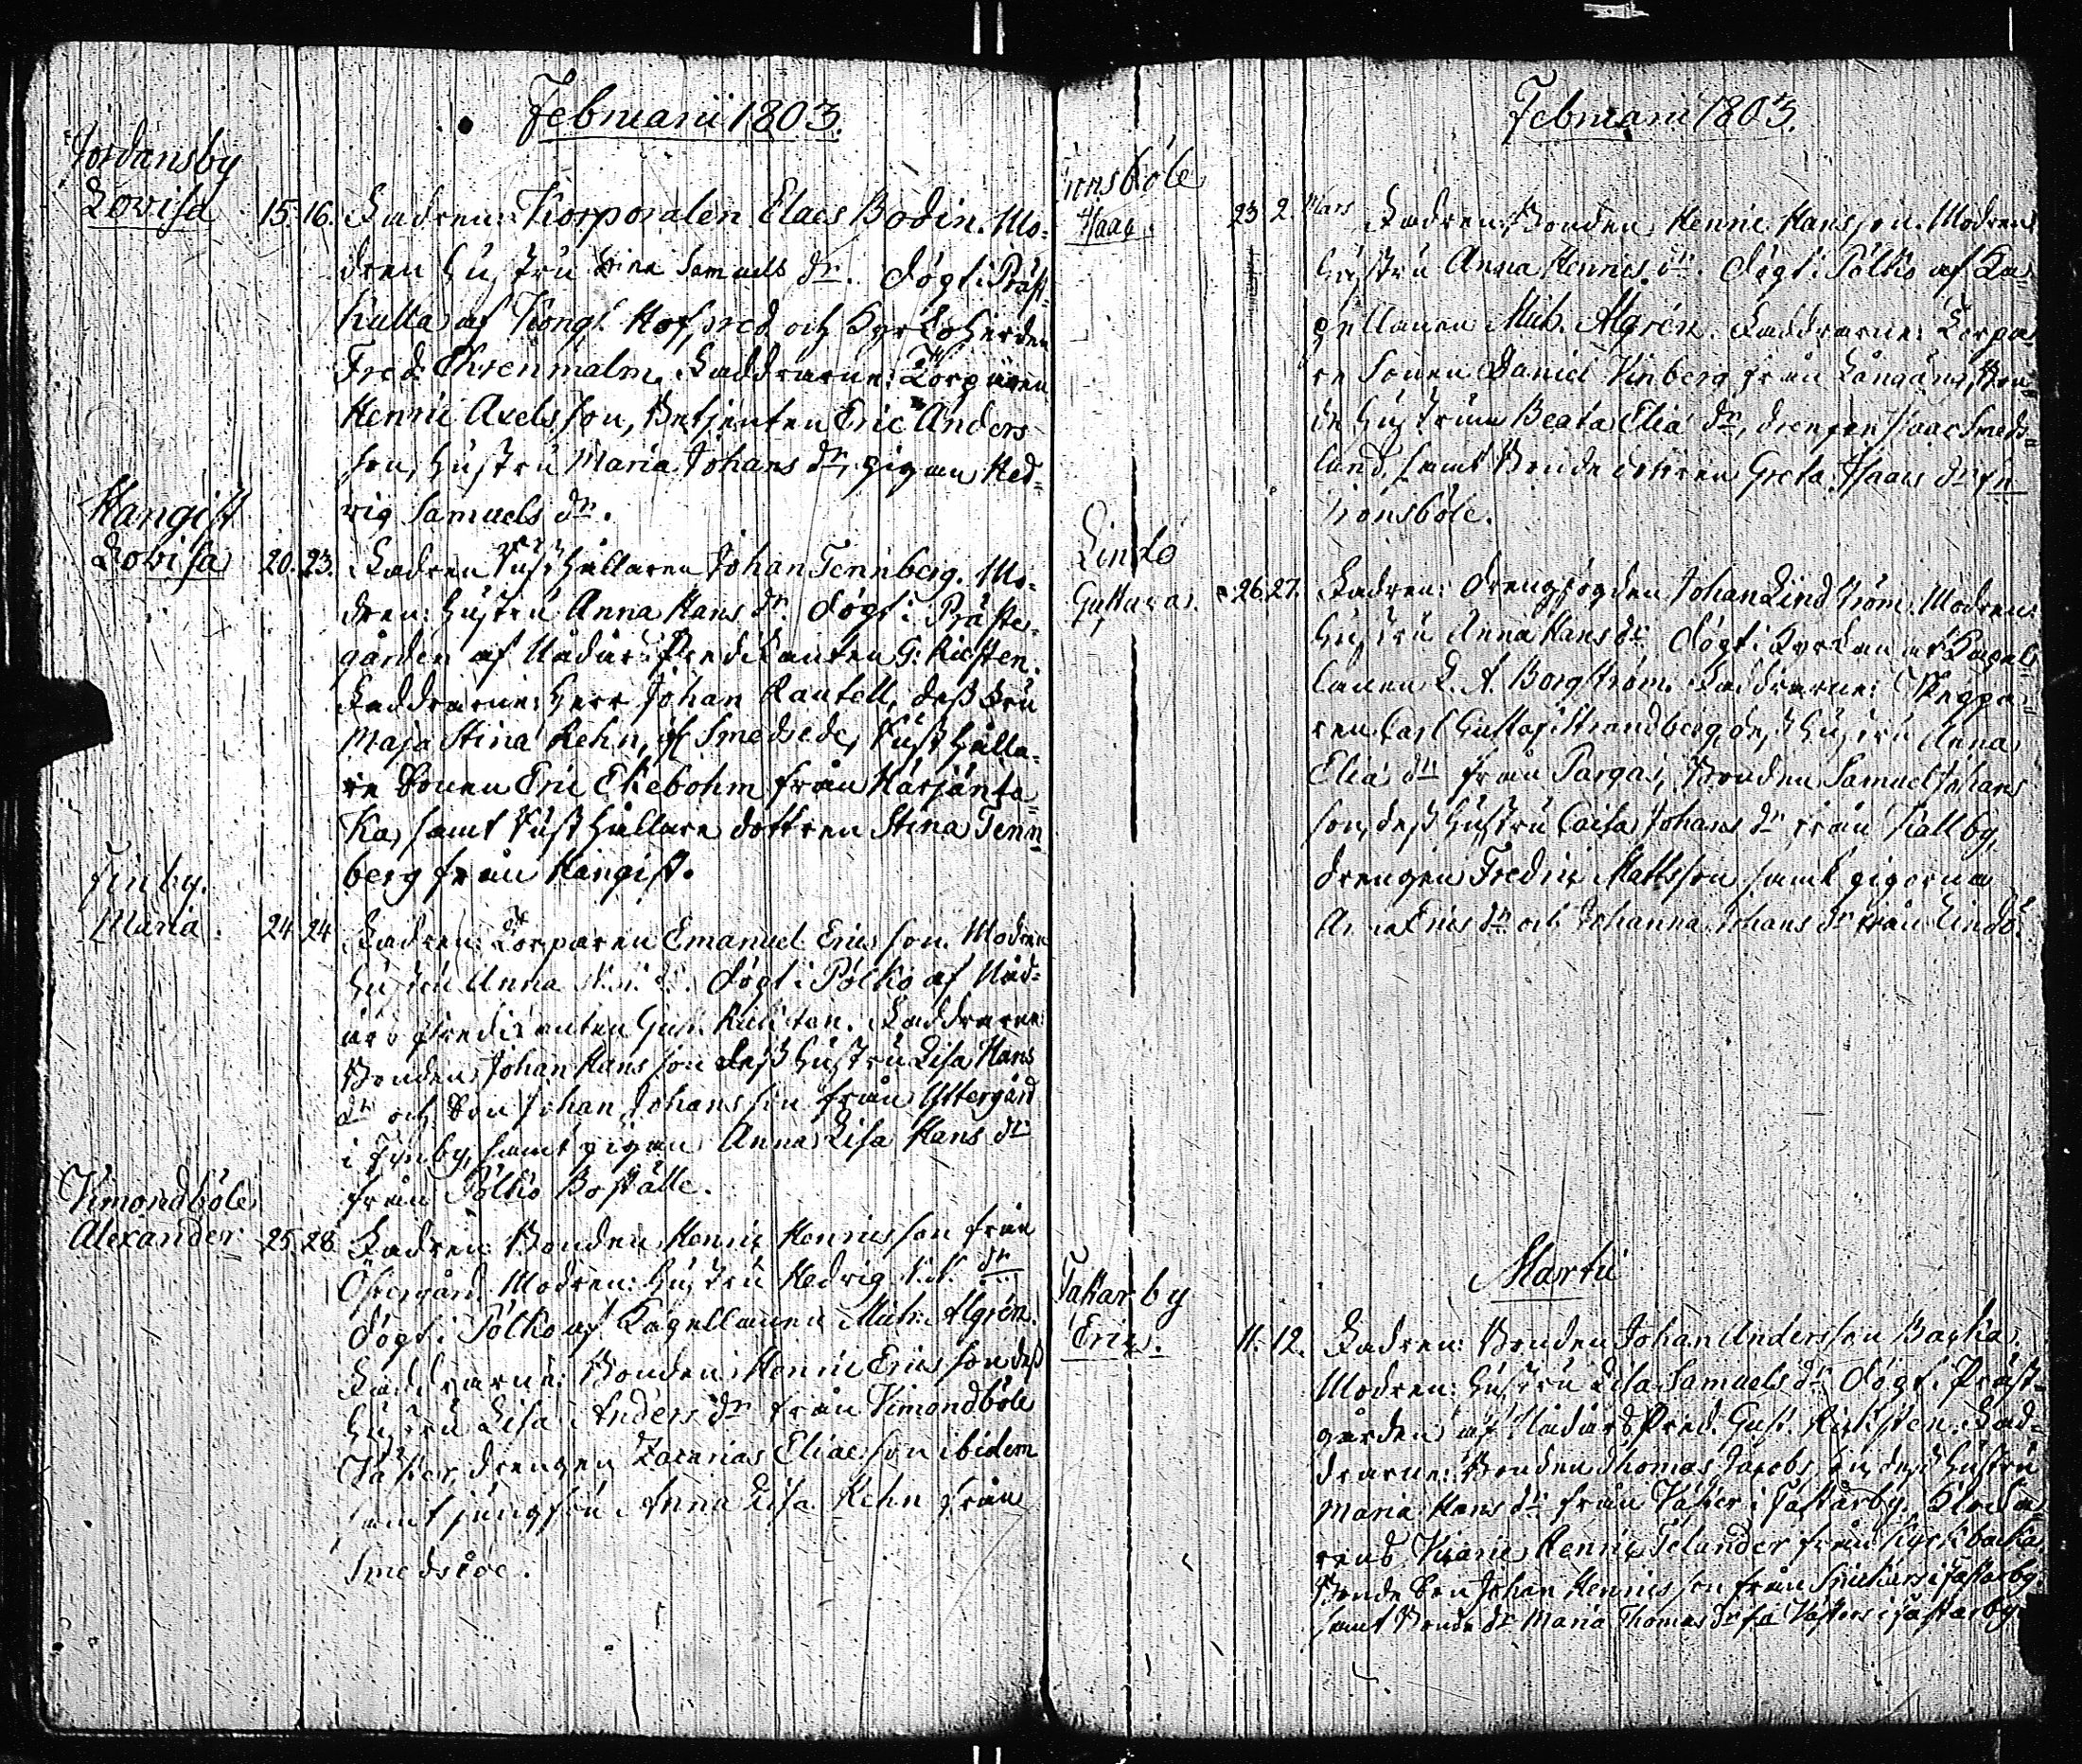 Februarii 1803.
Jordansby
Lovisa 15. 16. Fadren: Korporalen Elaes Bodin. Mo-
dren Hustru Stina Samuels dr. Döpt i Präst-
kulla af Kongl. Hofpred och Kyrkoherden
Fred. Ehrenmalm. Faddrarne: Torparen
Henric Axelsson, Betjenten Eric Anders
son, Hustru Maria Johans dr, pigan Hed-
vig Samuels dr.
Hangist
Lovisa 20. 23. Fadren Rusthållaren Johan Tennberg. Mo-
dren: Hustru Anna Hans dr. Döpt i Präste-
gården af Nådårs Predikanten G.
Faddrarne: Herr Johan Rautell, dess Fru
Maja Stina Rehn, Smedsede, Rusthålla-
re Sonen Eric Ekebohm från Härjänta-
ka, samt Rusthållare dottren Stina Tenn-
berg från Hangist.
Finby.
Maria. 24. 24. Fadren: Torparen Emanuel Ericsson. Modren
Hustru Anna dr. Döpt i Pölkö af Nåd-
års predikanten Gust. Faddrarne
Bonden Johan Hansson dess Hustru Lisa Hans
dr och Son Johan Johansson från Yttergård
i Finby, samt pigan Anna Lisa Hans dr
från Pölkö Boställe.
Vimondböle
Alexander 25. 28. Fadren: Bonden Henric Henricsson från
Öfvergård. Modren: Hustru Hedvig dr
Döpt i Pölkö af Kapellanen Mich. Algrén.
Faddrarne: Bonden Henric Ericsson dess
Hustru Lisa Anders dr från Vimondböle
Väster, drengen Zacarias Eliaeson ibidem
samt jungfru Anna Lisa Rehn från
Smedsede.
Februarii 1803.
nnsböle
Isaac. 23. 2. Mars Fadren: Bonden Henric Hansson. Modren
Hustru Anna Henrics dr. Döpt i Pölkö af Ka-
pellanen Mich. Algrén. Faddrarne: Torpa-
re Sonen Daniel Vinberg från Långäng, Bon-
de Hustrun Beata Elia dr, drengen Isaac Smeds-
lund, samt Bonde dottren Greta Isaacs dr fr
nnsböle.
Lindö
Gustava. 26. 27. Fadren: Drengfogden Johan Lindström. Modren:
Hustru Anna Hans dr. Döpt i Kyrkan af Kapel-
lanen L. A. Borgström. Faddrarne: Skeppa-
ren Carl Gustaf Strandberg, dess Hustru Anna
Elia dr från Pargas, Bonden Samuel Johans
son, dess Hustru Caisa Johans dr från Källby,
drengen Fredric Mattsson samt pigorna
Anna Erics dr och Johanna Johans dr från Lindö.
Martii
Tasarby
Eric. 11. 12. Fadren: Bonden Johan Andersson Backa.
Modren: Hustru Lisa Samuels dr. Döpt i Präst-
gården af Nådårs Pred. Gust. Fad-
drarne: Bonden Thomas Jacobsson, dess Hustru
Maria Hans dr från Väster i Tasarby,
Henric Telander från Kyrkbacka,
Bonde Son Johan Henricsson från i Tasarby
samt Bonde dr Maria Thomas dr fr Västers i Tasarby